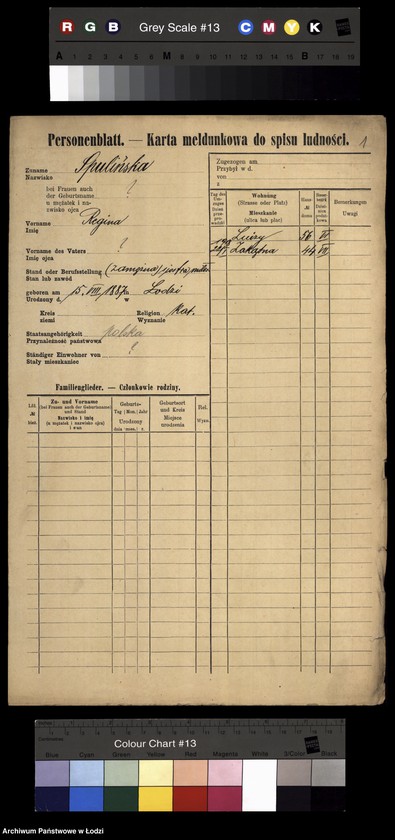 R G B Grey Scale #13 C M Y K
A 1 2 3 4 5 6 M 8 9 10 11 12 13 14 15 B 17 18 19
Personenblatt. — Karta meldunkowa do spisu ludności. 1
Zuname
Nazwisko Spulińska
bei Frauen auch
der Geburtsname
u mężatek i na-
zwisko ojca ?
Vorname
Imię Regina
Vorname des Vaters
Imię ojca ?
Stand oder Berufsstellung
Stan lub zawód (zamężna)
geboren am
Urodzony d. 15. VIII. 1887 in
w Łodzi
Kreis
ziemi
Religion
Wyznanie kat.
Staatsangehörigkeit
Przynależność państwowa polska
Ständiger Einwohner von
Stały mieszkaniec ?
Zugezogen am
Przybył w d.
von
z
Wohnung
(Strasse oder Platz)
Mieszkanie
(ulica lub plac)
Bemerkungen
Uwagi
56 VI
Łakątna 44 VII
Familienglieder. — Członkowie rodziny.
Zu- und Vorname
(bei Frauen auch der Geburtsname)
und Stand
Nazwisko i imię
(u mężatek i nazwisko ojca)
i stan
Geburts-
Tag | Mon. | Jahr
Urodzony
dnia | mies. | r.
Geburtsort
und Kreis
Miejsce
urodzenia
Rel.
Wyzn.
Colour Chart #13
Blue Cyan Green Yellow Red Magenta White 3/Color Black
Archiwum Państwowe w Łodzi